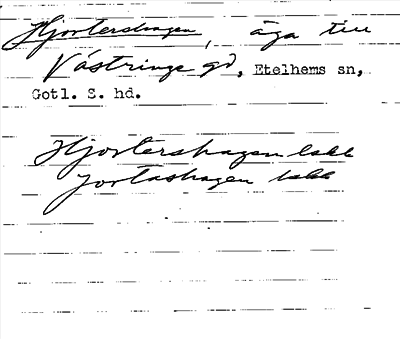 Hjortershagen, äga till
Västringe gd, Etelhems sn,
Gotl. S. hd.
Hjortershagen lskk
Jortashagen lskk